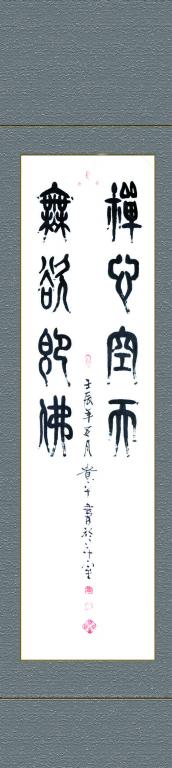 禪心空而
無欲即佛
壬辰年月書於室